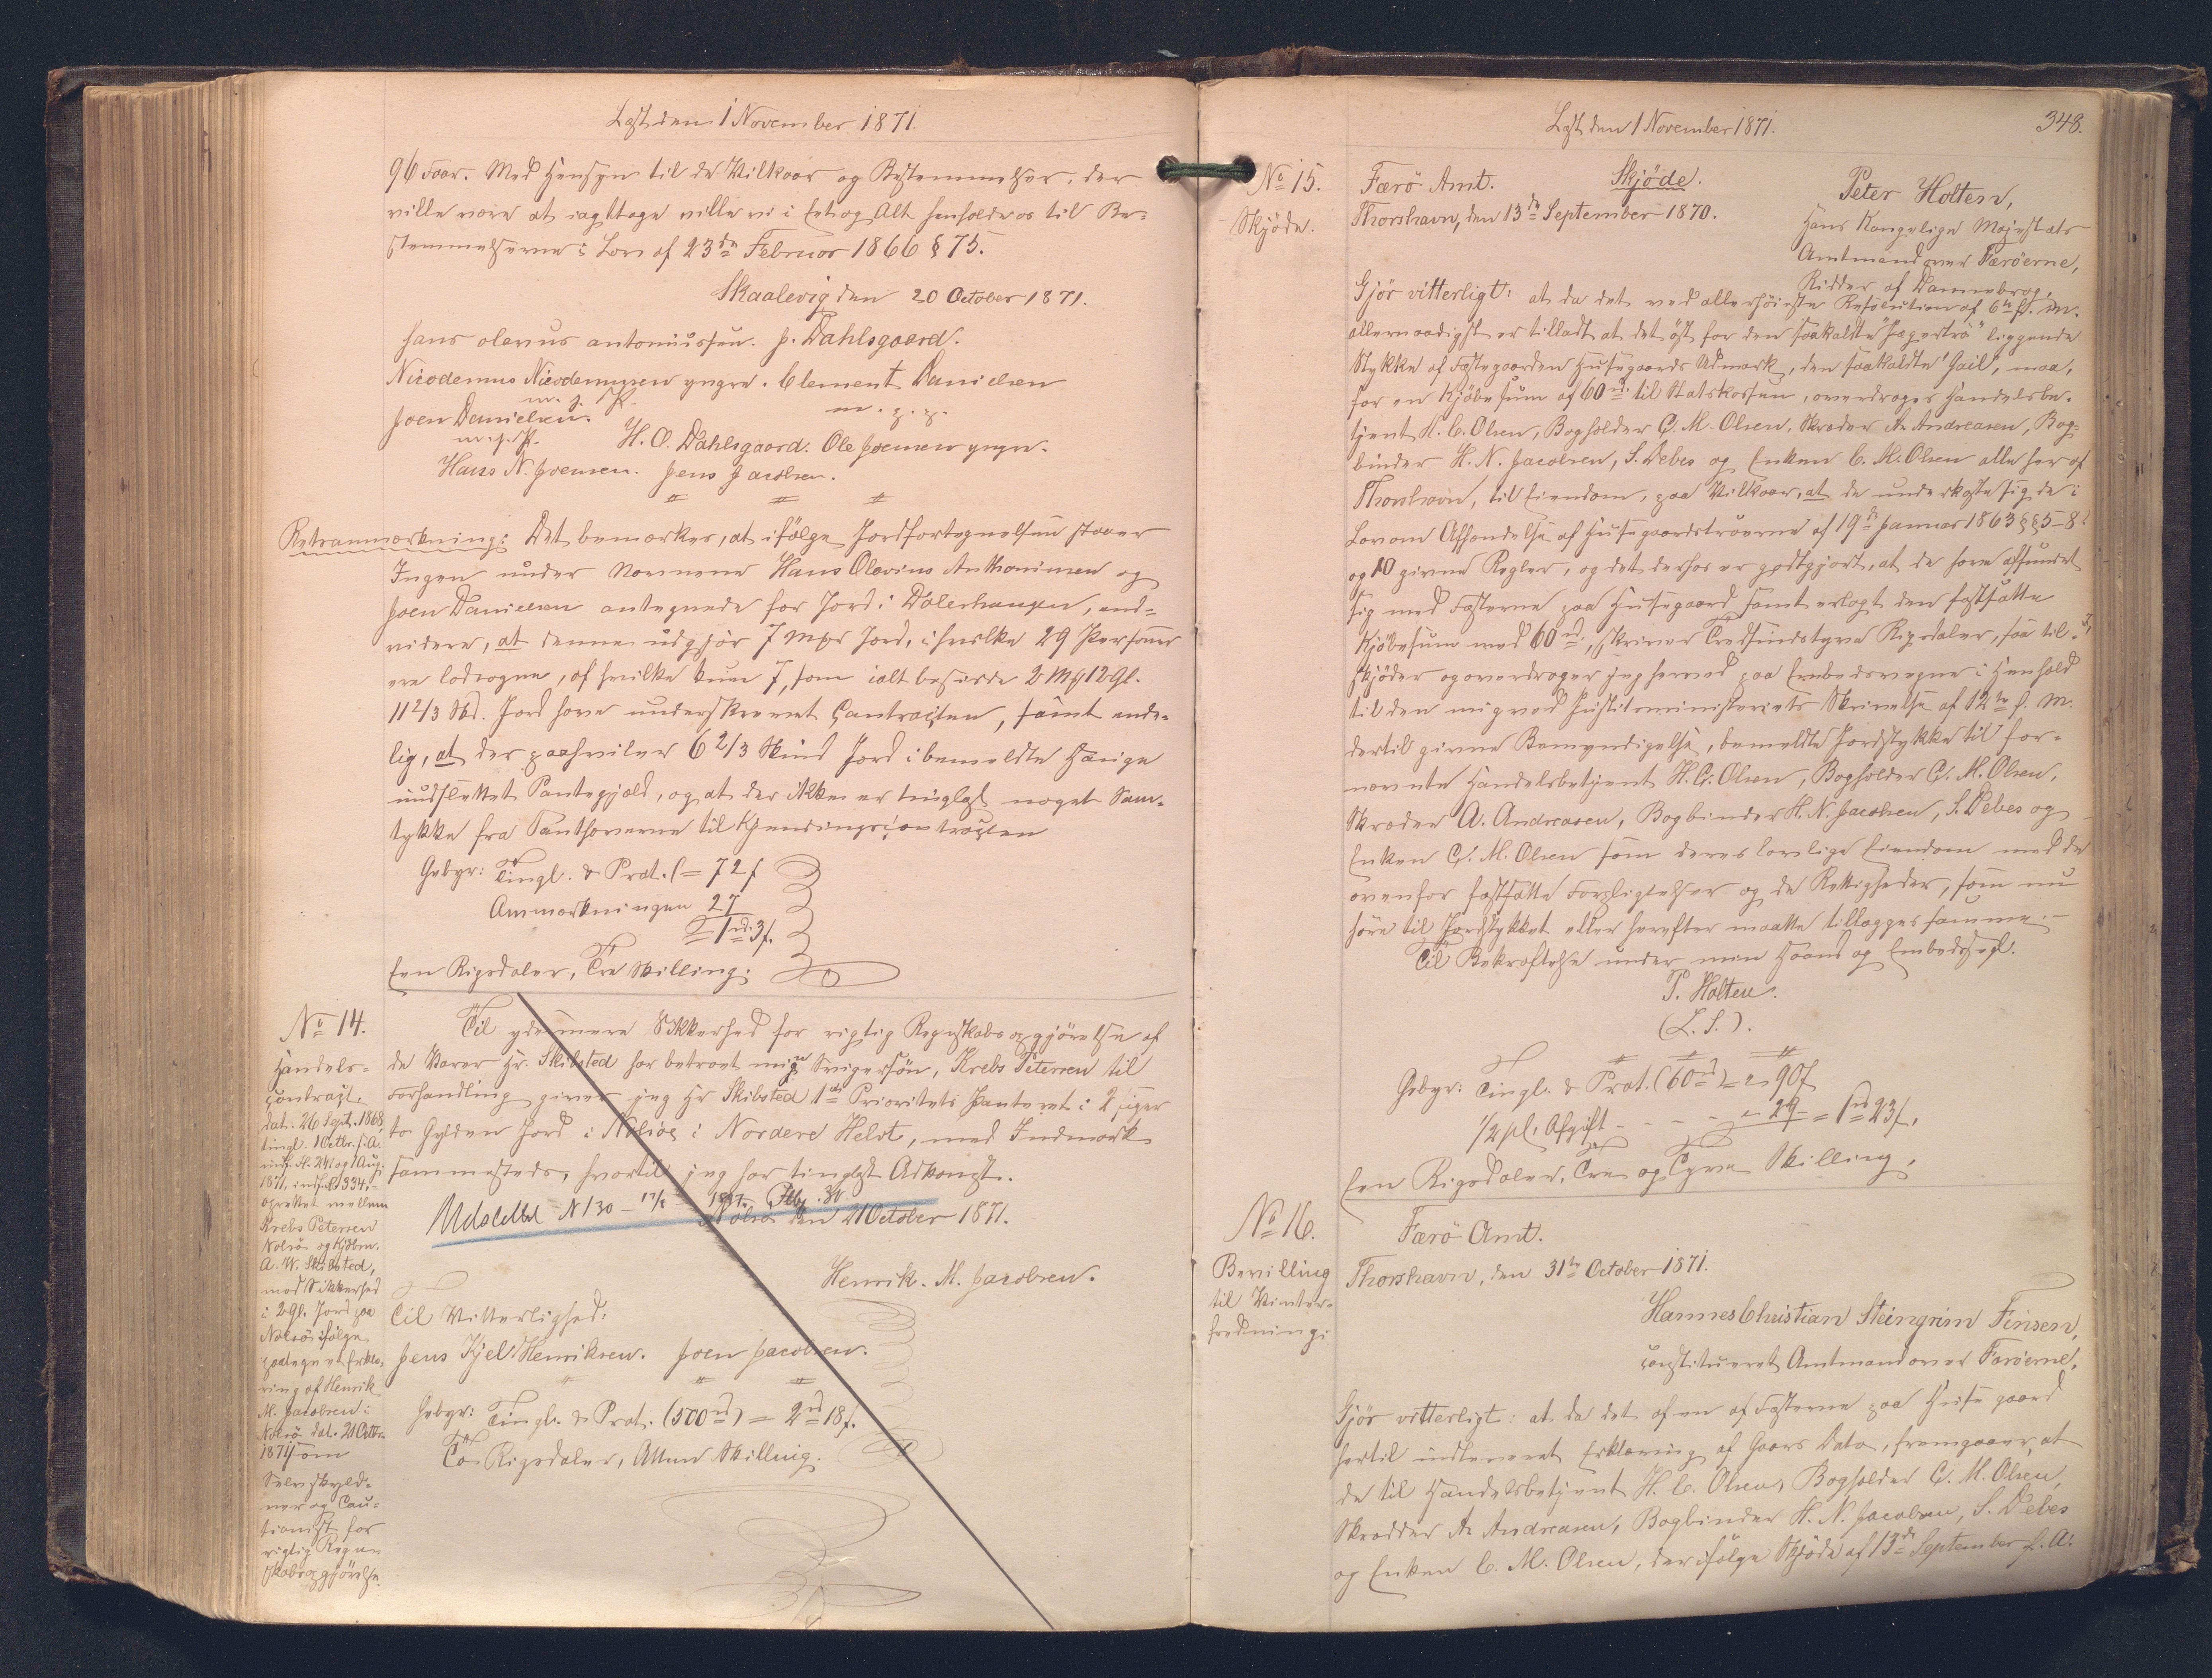 Læst den 1 November 1871.
96 Faar. Med Hensyn til de Vilkaar og Bestemmelser, der
ville være at iagttage ville vi i Eet og Alt henholde os til Be-
stemmelserne i Lov af 23de Februar 1866 § 75.
Skaalevig den 20 October 1871.
Hans olevus antoniussen. J. Dahlsgaard.
Nicodemus Nicodemussen yngre. Clement Danielsen
m. f. P. m. p. p.
Joen Danielsen.
m. f. P. H. O. Dahlsgaard. Ole Joensen yngre.
Hans N. Joensen. Jens Jacobsen.
Retsanmærkning: Det bemærkes, at ifølge Jordfortegnelsen staaer
Ingen under Navnene Hans Olavius Anthoniusen og
Joen Danielsen antegnede for Jord i Dalerhaugen, end-
videre, at denne udgjør 7 Mk Jord, i hvilke 29 Personer
ere lodtagne, af hvilke kun 7, som ialt besidde 2 Mk 12 Gl.
11 2/3 Skd. Jord have underskrevet Contracten, samt ende-
lig, at der paahviler 6 2/3 Skind Jord i bemeldte Hauge
uudslettet Pantegjæld, og at der ikke er tinglyst noget Sam-
tykke fra Panthaverne til Kjendingscontracten
Gebyr: Tingl. & Prot. (= 72 ſ
Anmærkningen 27
= 1 rd. 3 ſ.
Een Rigsdaler, Tre Skilling.
No 14.
Handels-
contract,
dat. 26 Sept. 1868,
tingl. 1 Octbr. s. A.
1871, indf. Fol. 334,
oprettet mellem
Krebs Petersen
Nolsø og Kjøbm.
A. W. Skibsted,
mod Sikkerhed
i 2 Gl. Jord paa
Nolsø ifølge
paategnet Erklæ-
ring af Henrik
M. Jacobsen i
Nolsø dat. 21 Octbr.
1871 som
Selvskyld-
ner og Cau-
tionist for
rigtig Regn-
skabsopgjørelse.
Til ydermere Sikkerhed for rigtig Regnskabsopgjørelse af
de Varer Hr. Skibsted har betroet min Svigersøn, Krebs Petersen til
Forhandling giver jeg Hr Skibsted 1ste Prioritets Panteret i 2 siger
to Gylden Jord i Nolsøe i Nordere Helvt, med Indmark
sammesteds, hvortil jeg har tinglyst Adkomst.
Udslettet N 130 – 17/2 – 1887. Fol. 30
Nolsø den 21 October 1871.
Henrik. M. Jacobsen.
Til Vitterlighed:
Jens Kjel Henriksen. Joen Jacobsen.
Gebyr: Tingl. & Prot. (500 rd) = 2 rd 18 ſ.
To Rigsdaler, Atten Skilling.
Læst den 1 November 1871.
348.
No 15.
Skjøde.
Færø Amt. Skjøde.
Thorshavn, den 13de September 1870.
Peter Holten,
Hans Kongelige Majestæts
Amtmand over Færøerne,
Ridder af Dannebrog,
Gjør vitterligt: at da det ved allerhøieste Resolution af 6te f. M.
allernaadigst er tilladt at det øst for den saakaldte "Jægertrø" liggende
Stykke af Fæstegaarden Husegaards Udmark, den saakaldte "Gail", maa,
for en Kjøbesum af 60 rd. til Statskassen, overdrages Handelsbe-
tjent H. C. Olsen, Bogholder C. M. Olsen, Skræder A. Andreasen, Bog-
binder H. N. Jacobsen, S. Debes og Enken C. M. Olsen alle her af
Thorshavn, til Eiendom, paa Vilkaar, at de underkaste sig de i
Lov om Afhændelse af Husegaardstrøerne af 19de Januar 1863 §§ 5–8
og 10 givne Regler, og det derhos er godtgjort, at de have affundet
sig med Fæsterne paa Husegaard samt erlagt den fastsatte
Kjøbesum med 60 rd., skriver Tredsindstyve Rigsdaler, saa til-
skjøder og overdrager jeg herved paa Embedsvegne i Henhold
til den mig ved Justitsministeriets Skrivelse af 12te f. M.
dertil givne Bemyndigelse, bemeldte Jordstykke til for-
nævnte Handelsbetjent H. C. Olsen, Bogholder C. M. Olsen,
Skræder A. Andreasen, Bogbinder H. N. Jacobsen, S. Debes og
Enken C. M. Olsen som deres lovlige Eiendom med de
ovenfor fastsatte Forpligtelser og de Rettigheder, som nu
høre til Jordstykket eller herefter maatte tillægges samme.–
Til Bekræftelse under min Haand og Embedssegl.
P. Holten.
(L. S.).
Gebyr: Tingl. & Prot. (60 rd) = 90 ſ
1/2 pCt. Afgift - - - - 29 = 1 rd 23 ſ.
Een Rigsdaler, Tre og Tyve Skilling.
No 16.
Bevilling
til Vinter-
fredning.
Færø Amt.
Thorshavn, den 31te October 1871.
Hannes Christian Steingrim Finsen,
constitueret Amtmand over Færøerne,
Gjør vitterligt: at da det af en af Fæsterne paa Husegaard
hertil indleveret Erklæring af Gaars Dato, fremgaaer, at
de til Handelsbetjent H. C. Olsen, Bogholder C. M. Olsen,
Skrædder A. Andreasen, Bogbinder H. N. Jacobsen, S. Debes
og Enken C. M. Olsen, der ifølge Skjøde af 13de September f. A.